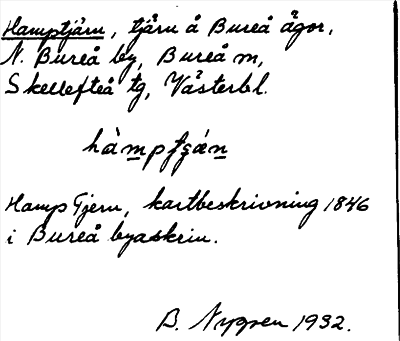 Hamptjärn, tjärn å Bureå ägor,
N. Bureå by, Bureå m,
Skellefteå tg, Västerbl.
Hamp Tjern, kartbeskrivning 1846
i Bureå byaskrin.
B. Nygren 1932.